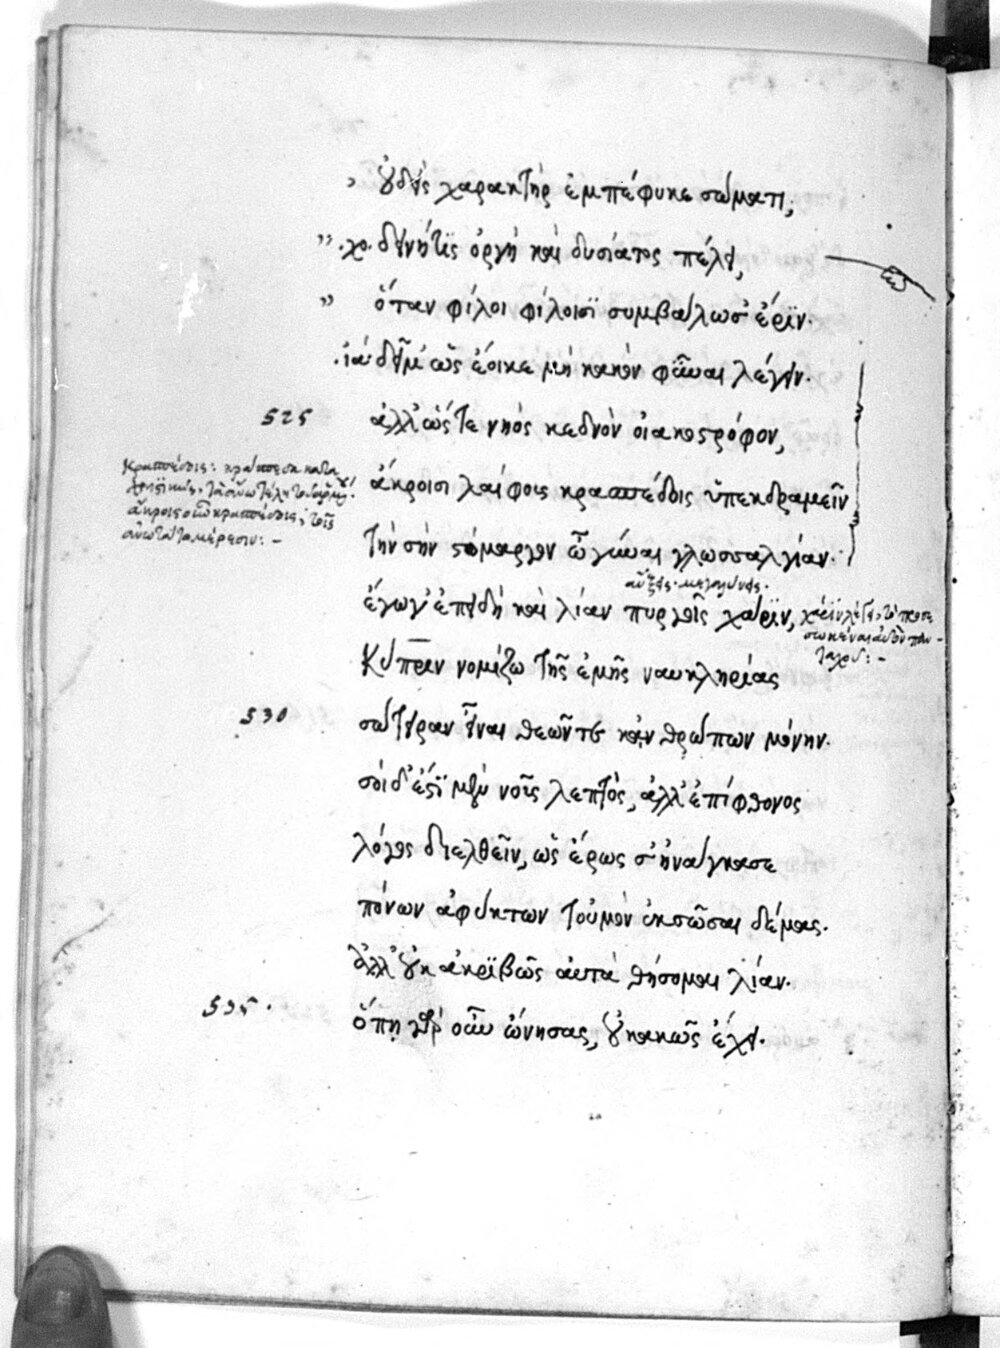 οὐδεὶς χαρακτὴρ ἐμπέφυκε σώματι;
.χο. δεινή τις ὀργὴ καὶ δυσίατος πέλει,
ὅταν φίλοι φίλοισι συμβάλωσ' ἔριν.
.ἰά. δεῖ μ' ὡς ἔοικε μὴ κακὸν φῦναι λέγειν.
525 ἀλλ' ὥστε νηὸς κεδνὸν οἰακοστρόφον,
ἄκροισι λαίφους κρασπέδοις ὑπεκδραμεῖν
τὴν σὴν στόμαργον ὦ γύναι γλωσσαλγίαν.
αὔξεις. μεγαλύνεις.
ἐγὼ γ' ἐπειδὴ καὶ λίαν πυργοῖς χάριν,
Κύπριν νομίζω τῆς ἐμῆς ναυκληρίας
530 σώτειραν εἶναι θεῶν τε κἀνθρώπων μόνην.
σοὶ δ' ἔστι μὲν νοῦς λεπτὸς, ἀλλ' ἐπίφθονος
λόγος διελθεῖν, ὡς ἔρως σ' ἠνάγκασε
πόνων ἀφύκτων τοὐμὸν ἐκσῶσαι δέμας.
ἀλλ' οὐκ ἀκριβῶς αὐτὰ θήσομαι λίαν.
535. ὅπῃ γὰρ οὖν ὤνησας, οὐ κακῶς ἔχει.